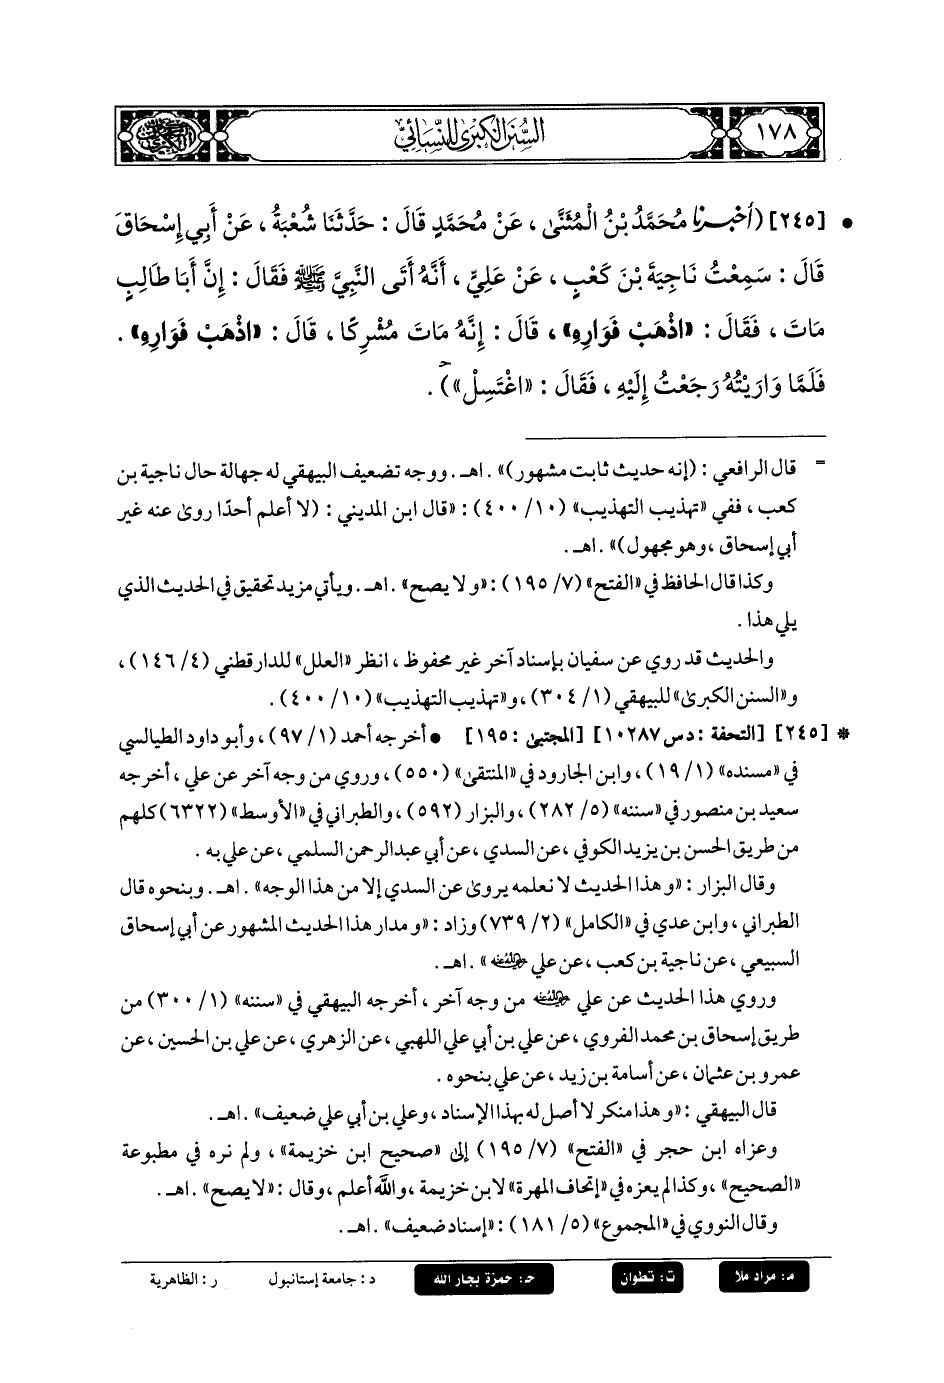 ١٧٨
السنن الكبرى للنسائي
• [٢٤٥] (أخبرنا مُحَمَّدُ بْنُ الْمُثَنَّى ، عَنْ مُحَمَّدٍ قَالَ : حَدَّثَنَا شُعْبَةُ ، عَنْ أَبِي إِسْحَاقَ
قَالَ : سَمِعْتُ نَاجِيَةَ بْنَ كَعْبٍ ، عَنْ عَلِيٍّ ، أَنَّهُ أَتَى النَّبِيَّ ﷺ فَقَالَ : إِنَّ أَبَا طَالِبٍ
مَاتَ ، فَقَالَ : «اذْهَبْ فَوَارِهِ» ، قَالَ : إِنَّهُ مَاتَ مُشْرِكًا ، قَالَ : «اذْهَبْ فَوَارِهِ» .
فَلَمَّا وَارَيْتُهُ رَجَعْتُ إِلَيْهِ ، فَقَالَ : «اغْتَسِلْ») .
= قال الرافعي : (إنه حديث ثابت مشهور)» . اهـ . ووجه تضعيف البيهقي له جهالة حال ناجية بن
كعب ، ففي «تهذيب التهذيب» (١٠/ ٤٠٠) : «قال ابن المديني : (لا أعلم أحدًا روى عنه غير
أبي إسحاق ، وهو مجهول)» . اهـ .
وكذا قال الحافظ في «الفتح» (٧/ ١٩٥) : «ولا يصح» . اهـ . ويأتي مزيد تحقيق في الحديث الذي
يلي هذا .
والحديث قد روي عن سفيان بإسناد آخر غير محفوظ ، انظر «العلل» للدارقطني (٤/ ١٤٦) ،
و«السنن الكبرى» للبيهقي (١/ ٣٠٤) ، و«تهذيب التهذيب» (١٠/ ٤٠٠) .
* [٢٤٥] [التحفة : دس ١٠٢٨٧] [المجتبى : ١٩٥] • أخرجه أحمد (١/ ٩٧) ، وأبو داود الطيالسي
في «مسنده» (١/ ١٩) ، وابن الجارود في «المنتقى» (٥٥٠) ، وروي من وجه آخر عن علي ، أخرجه
سعيد بن منصور في «سننه» (٥/ ٢٨٢) ، والبزار (٥٩٢) ، والطبراني في «الأوسط» (٦٣٢٢) كلهم
من طريق الحسن بن يزيد الكوفي ، عن السدي ، عن أبي عبدالرحمن السلمي ، عن علي به .
وقال البزار : «وهذا الحديث لا نعلمه يروى عن السدي إلا من هذا الوجه» . اهـ . وبنحوه قال
الطبراني ، وابن عدي في «الكامل» (٢/ ٧٣٩) وزاد : «ومدار هذا الحديث المشهور عن أبي إسحاق
السبيعي ، عن ناجية بن كعب ، عن علي رضي الله عنه» . اهـ .
وروي هذا الحديث عن علي رضي الله عنه من وجه آخر ، أخرجه البيهقي في «سننه» (١/ ٣٠٠) من
طريق إسحاق بن محمد الفروي ، عن علي بن أبي علي اللهبي ، عن الزهري ، عن علي بن الحسين ، عن
عمرو بن عثمان ، عن أسامة بن زيد ، عن علي بنحوه .
قال البيهقي : «وهذا منكر لا أصل له بهذا الإسناد ، وعلي بن أبي علي ضعيف» . اهـ .
وعزاه ابن حجر في «الفتح» (٧/ ١٩٥) إلى «صحيح ابن خزيمة» ، ولم نره في مطبوعة
«الصحيح» ، وكذا لم يعزه في «إتحاف المهرة» لابن خزيمة ، والله أعلم ، وقال : «لا يصح» . اهـ .
وقال النووي في «المجموع» (٥/ ١٨١) : «إسناد ضعيف» . اهـ .
م: مراد ملا ت: تطوان حـ: حمزة بجار الله د: جامعة إستانبول ر: الظاهرية